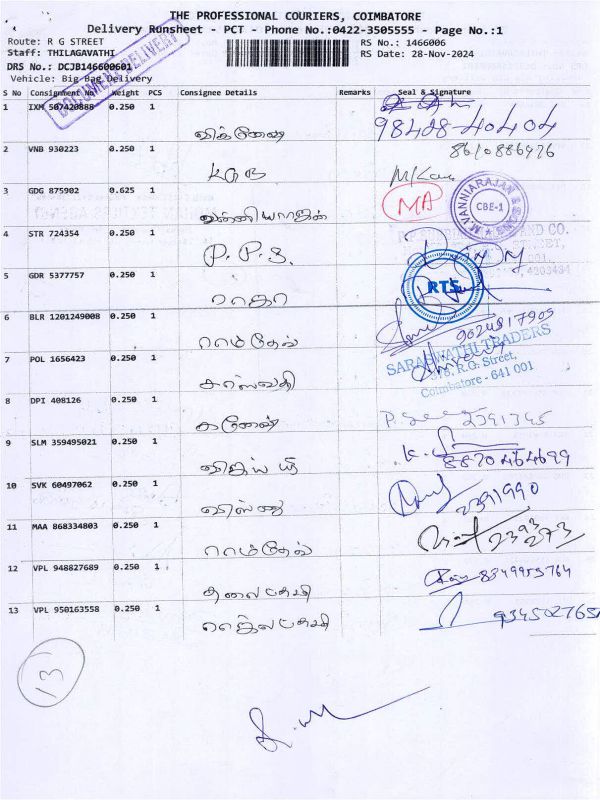 THE PROFESSIONAL COURIERS, COIMBATORE
Delivery Runsheet - PCT - Phone No.:0422-3505555 - Page No.:1
Route: R G STREET
RS No.: 1466006
Staff: THILAGAVATHI
RS Date: 28-Nov-2024
DRS No.: DCJB146600601
Vehicle: Big Bag Delivery
DOCUMENT DELIVERY
S No Consignment No Weight PCS Consignee Details Remarks Seal & Signature
1 IXM 507420888 0.250 1 விக்னேஷ் 98428-40404
2 VNB 930223 0.250 1 8610886976
3 GDG 875902 0.625 1 வன்னியராஜன் MA
M.VANNIARAJAN & SONS CBE-1
4 STR 724354 0.250 1 P.P.S.
5 GDR 5377757 0.250 1 ராதா RTS
6 BLR 1201249008 0.250 1 ராம்தேவ் 9024817909
SARASWATHI TRADERS
R.G. Street,
Coimbatore - 641 001
7 POL 1656423 0.250 1 சரஸ்வதி
8 DPI 408126 0.250 1 கணேஷ் 2391345
9 SLM 359495021 0.250 1 8870464699
10 SVK 60497062 0.250 1 விஸ்ணு 2391990
11 MAA 868334803 0.250 1 ராம்தேவ் 2393273
12 VPL 948827689 0.250 1 8349953764
13 VPL 950163558 0.250 1 934502765
13